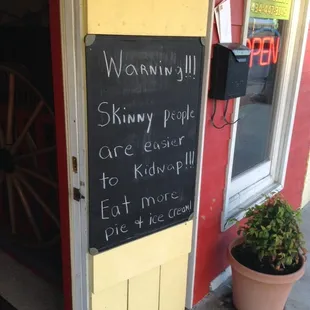 Warning!!!
Skinny people
are easier
to Kidnap!!!
Eat more
pie & ice cream!
OPEN